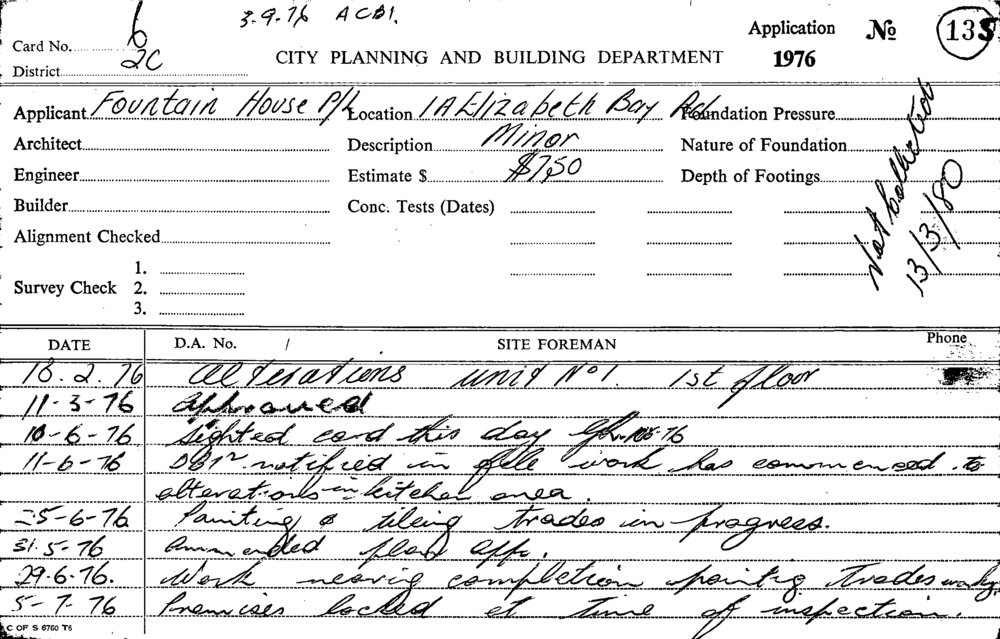 3-9-76 ACBI.
Card No. 6
District 2C
CITY PLANNING AND BUILDING DEPARTMENT
Application
1976
No 135
Applicant Fountain House P/L Location 1A Elizabeth Bay Rd Foundation Pressure
Architect Description Minor Nature of Foundation
Engineer Estimate $ $7,50 Depth of Footings
Builder Conc. Tests (Dates)
Alignment Checked
Survey Check 1.
2.
3.
Not Collected
13/3/80
DATE D.A. No. / SITE FOREMAN Phone
16.2.76 Alterations unit No1. 1st floor
11-3-76 approved
10-6-76 sighted card this day
11-6-76 notified in file work has commenced to
alterations in kitchen area.
25-6-76 Painting & tileing trades in progress.
31.5-76 Ammended plan app.
29-6-76. Work nearing completion painting trades
5-7-76 Premises locked at time of inspection.
C OF S 6760 T6